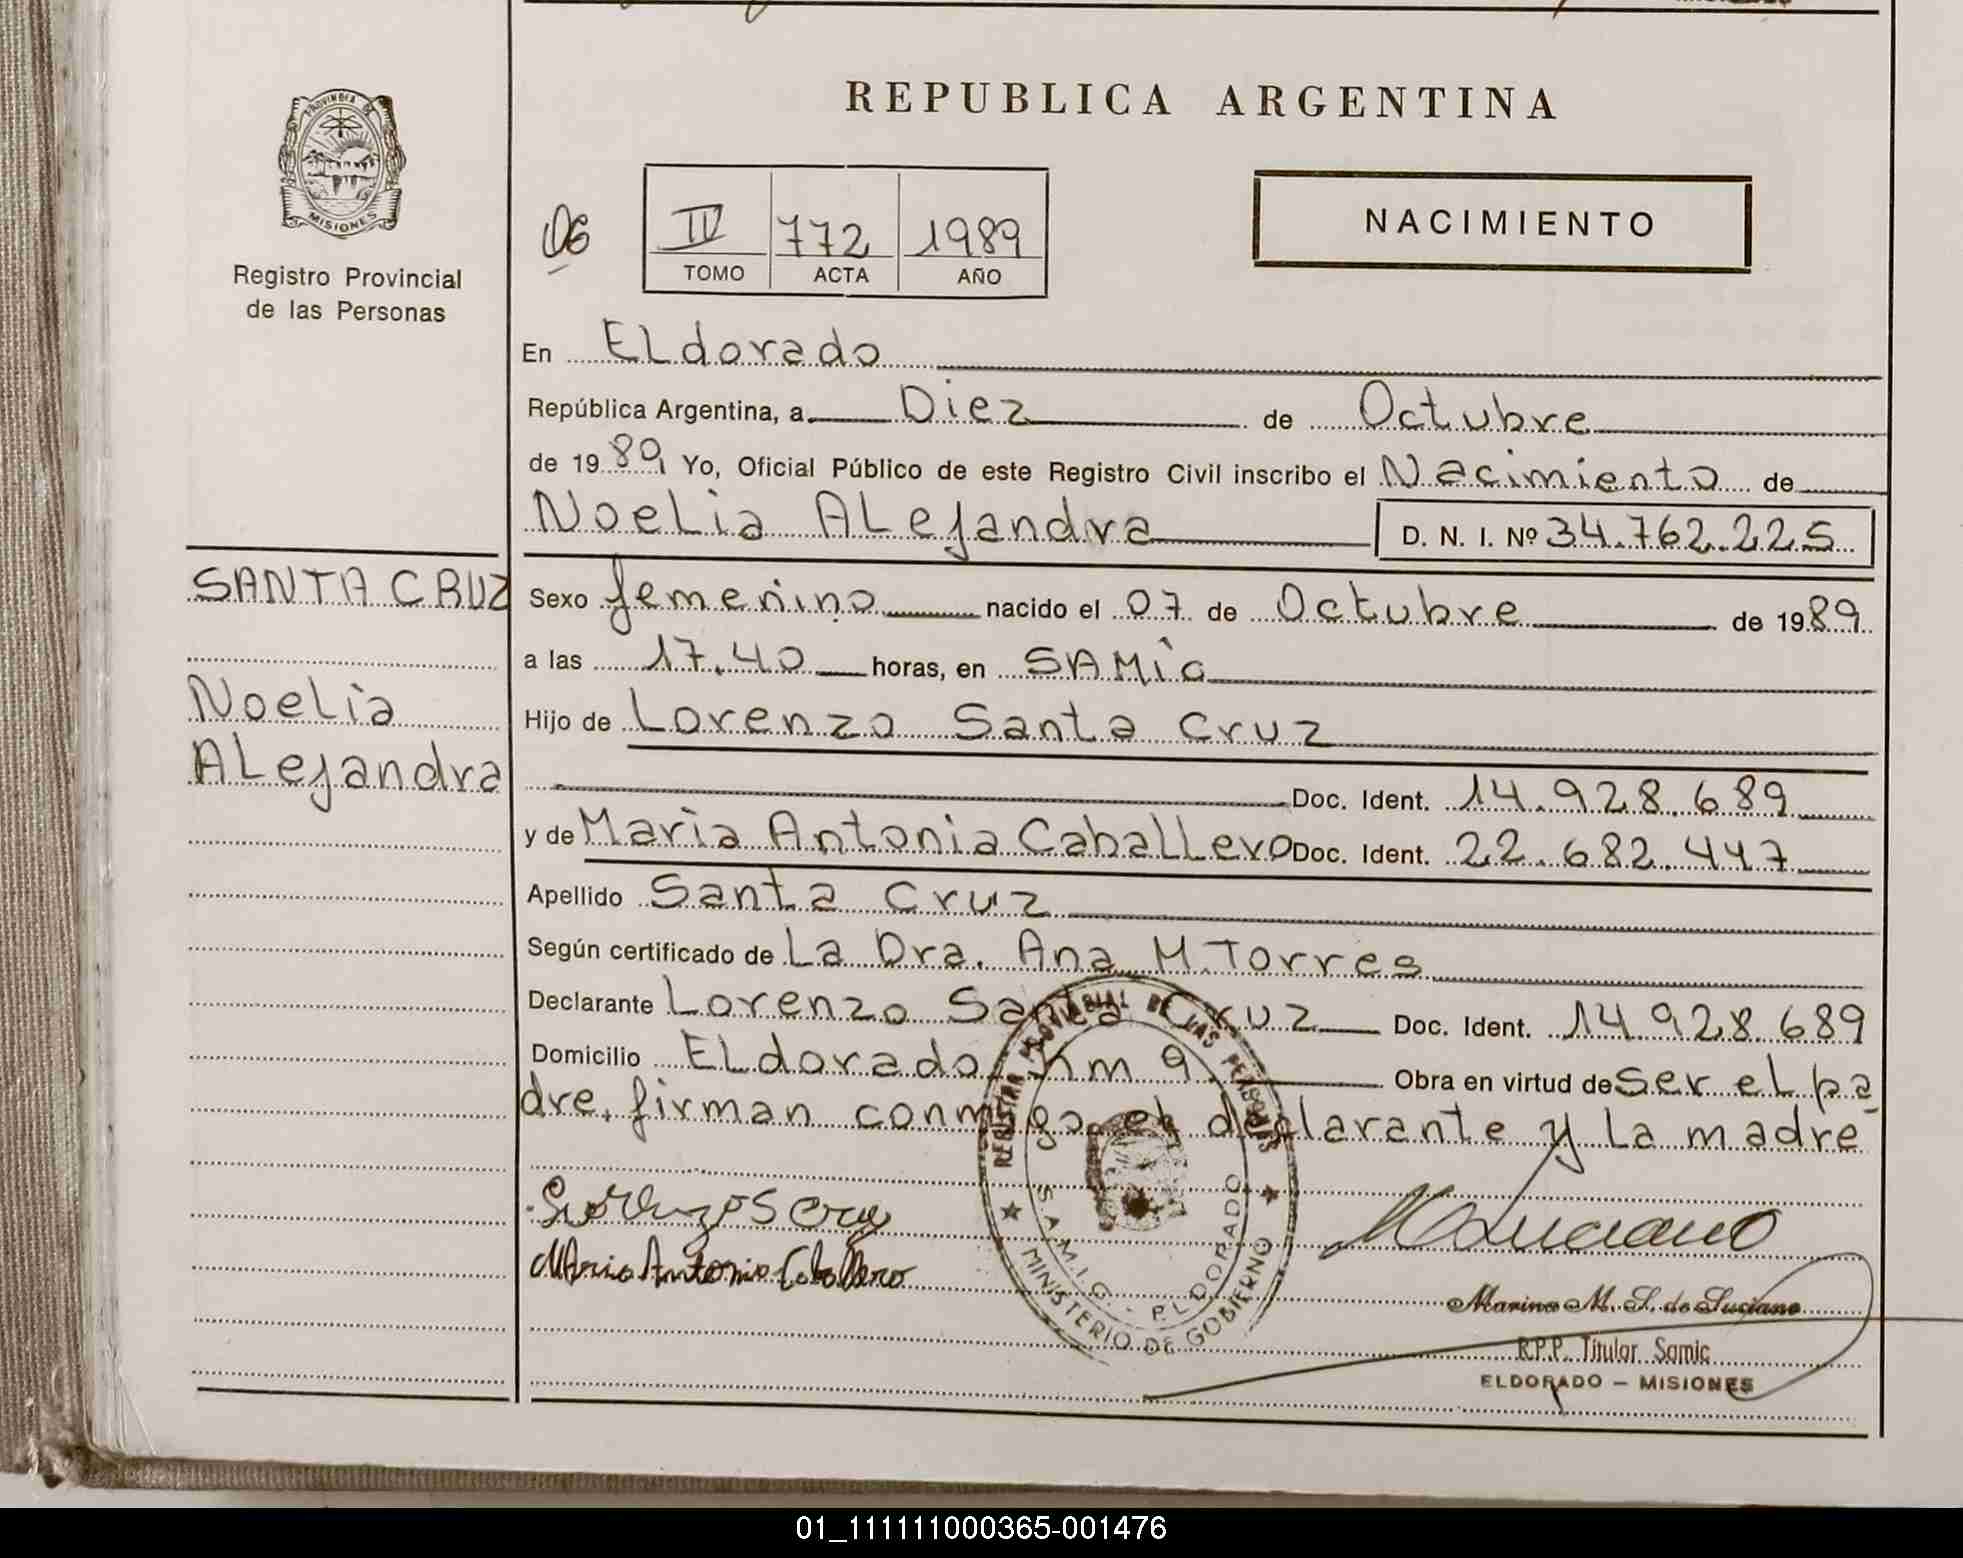 REPUBLICA ARGENTINA
PROVINCIA DE
MISIONES
Registro Provincial
de las Personas
06
IV 772 1989
TOMO ACTA AÑO
NACIMIENTO
En ELdorado
República Argentina, a Diez de Octubre
de 1989, Yo, Oficial Público de este Registro Civil inscribo el Nacimiento de
NoeLia ALejandra D. N. I. Nº 34.762.225
SANTA CRUZ
NoeLia
ALejandra
Sexo femenino nacido el 07 de Octubre de 1989
a las 17.40 horas, en SAMic
Hijo de Lorenzo Santa Cruz
Doc. Ident. 14.928.689
y de Maria Antonia CabaLLero Doc. Ident. 22.682.447
Apellido Santa Cruz
Según certificado de La Dra. Ana M. Torres
Declarante Lorenzo Santa Cruz Doc. Ident. 14.928.689
Domicilio ELdorado, km 9. Obra en virtud de ser eL pa
dre, firman conmigo, eL declarante y La madre
REGISTRO PROVINCIAL DE LAS PERSONAS
S.A.M.I.C. - ELDORADO
MINISTERIO DE GOBIERNO
Lorenzo S Cruz
Maria Antonia Caballero
M de Luciano
Marina M. S. de Luciano
R.P.P. Titular Samic
ELDORADO – MISIONES
01_111111000365-001476